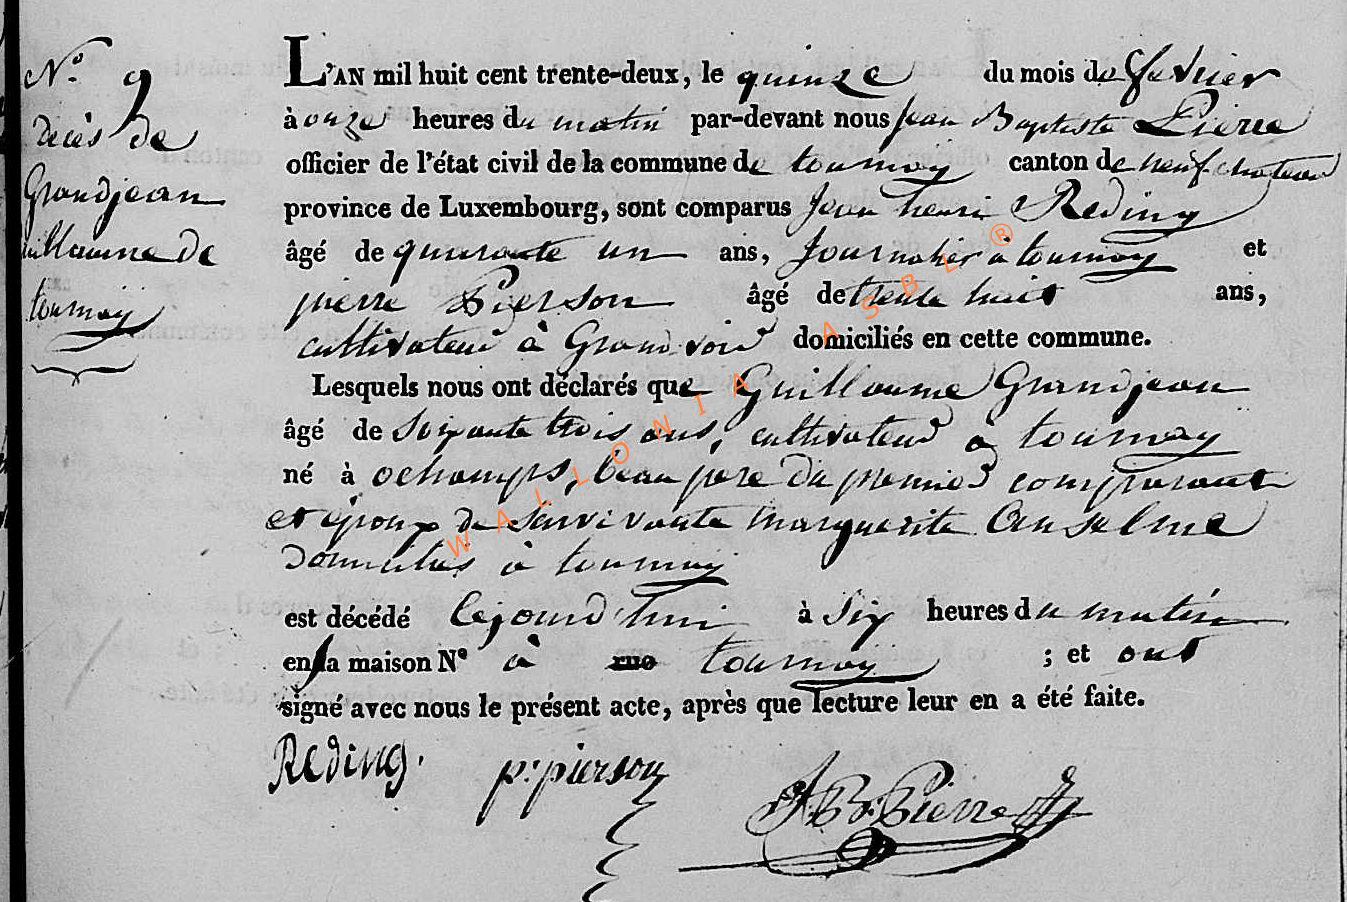 N.º 9
décès de
Grandjean
Guillaume de
tournay
L'AN mil huit cent trente-deux, le quinze du mois de fevrier
à onze heures du matin par-devant nous jean Baptiste Pierre
officier de l'état civil de la commune de tournay canton de neufchateau
province de Luxembourg, sont comparus Jean henri Reding
âgé de quarante un ans, journalier à tournay et
pierre Pierson âgé de trente huit ans,
cultivateur à Grandvoir domiciliés en cette commune.
Lesquels nous ont déclarés que Guillaume Grandjean
âgé de soixante trois ans, cultivateur à tournay
né à ochamps, beau pere du premier comparant
et epoux de survivante marguerite Anselme
domiciliés à tournay
est décédé cejourd'hui à six heures du matin
en sa maison Nº à rue tournay ; et ont
signé avec nous le présent acte, après que lecture leur en a été faite.
Reding. p: pierson J. B. Pierre
WALLONIA ASBL ®